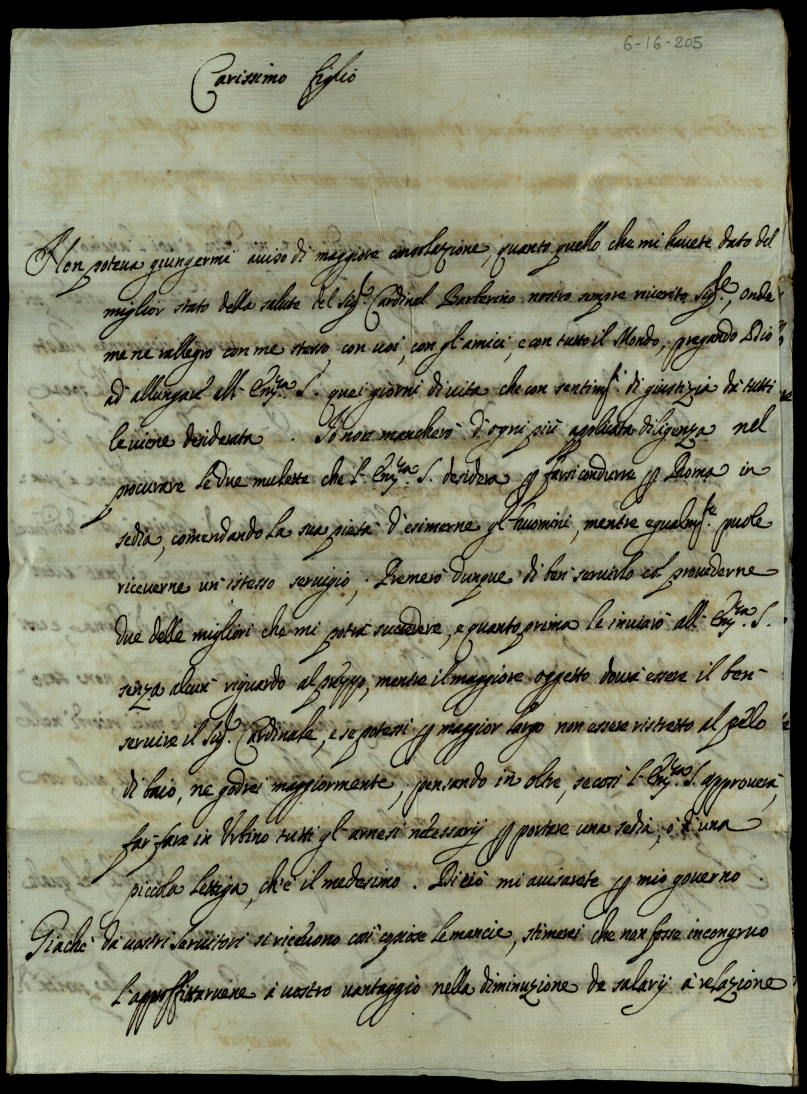 6-16-205
Carissimo figlio
Non poteva giungermi aviso di maggiore consolazione, quanto quello che mi havete dato del
miglior stato della salute del Sig.r Cardinal Barberino nostro sempre riverito Sig.re, onde
me ne rallegro con me stesso, con voi, con gl'amici, e con tutto il Mondo, pregando Dio
ad allungare all' Em.za S. quei giorni di vita che con sentim.ti di giustizia da tutti
le viene desiderata. Io non mancherò d'ogni più applicata diligenza nel
procurare le due mulette che l' Em.za S. desidera p farsi condurre p Roma in
sedia, comendando la sua pietà d'esimerne gl'huomini, mentre egualm.te puole
riceverne un' istesso servigio. Premerò dunque di ben servirlo col provederne
due delle migliori che mi potrà succedere, e quanto prima le inviarò all' Em.za S.
senza alcun riguardo al prezzo, mentre il maggiore oggetto dovrà essere il ben
servire il Sig.r Cardinale, e se potessi p maggior largo non essere ristretto al pelo
di baio, ne godrei maggiormente, pensando in oltre, se così l' Em.za S. approverà,
far fare in Urbino tutti gl'arnesi necessarij p portare una sedia, ò d'una
piccola lettiga, ch'è il medesimo. Di ciò mi avisarete p mio governo.
Giache da vostri servitori si ricevono così copiose le mancie, stimerei che non fosse incongruo
l'approffittarvene à vostro vantaggio nella diminuzione de salarij à relazione